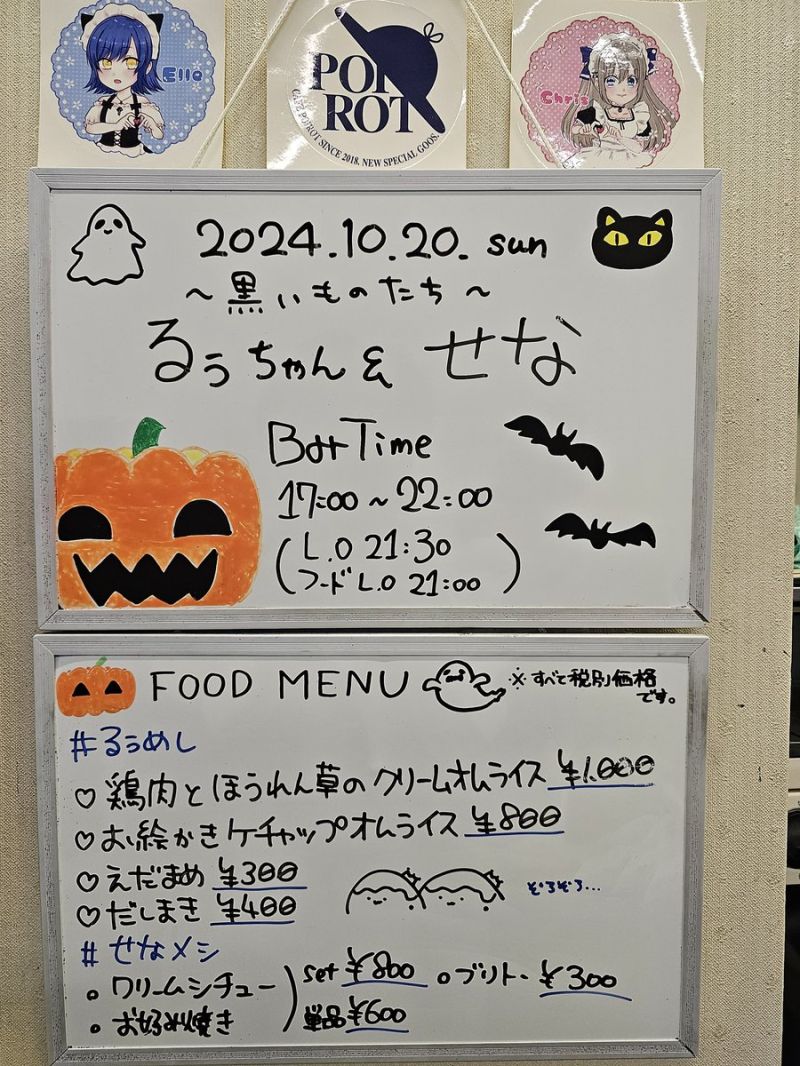 Ella
POI
ROT
CAFE POIROT SINCE 2018. NEW SPECIAL GOOS.
Chris
2024.10.20. sun
～黒いものたち～
るぅちゃん & せな
Bar Time
17:00～22:00
(L.O 21:30
フードL.O 21:00)
FOOD MENU ※すべて税別価格
です。
#るぅめし
♡鶏肉とほうれん草のクリームオムライス ¥1.000
♡お絵かきケチャップオムライス ¥800
♡えだまめ ¥300
♡だしまき ¥400
ぞろぞろ…
#せなメシ
。クリームシチュー
。お好み焼き
set ¥800
単品¥600
。ブリトー ¥300